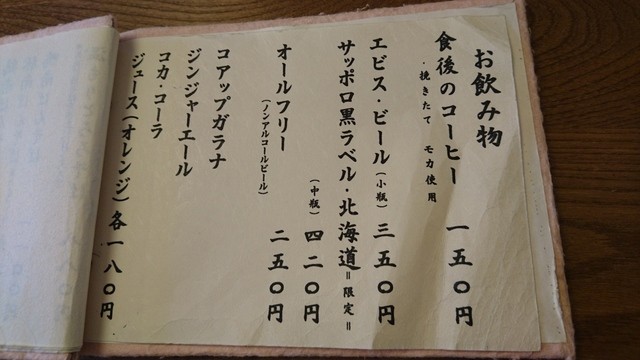 お飲み物
食後のコーヒー 一五〇円
・挽きたて モカ使用
エビス・ビール(小瓶) 三五〇円
サッポロ黒ラベル・北海道=限定=
(中瓶) 四二〇円
オールフリー 二五〇円
(ノンアルコールビール)
コアップガラナ
ジンジャーエール
コカ・コーラ
ジュース(オレンジ) 各一八〇円